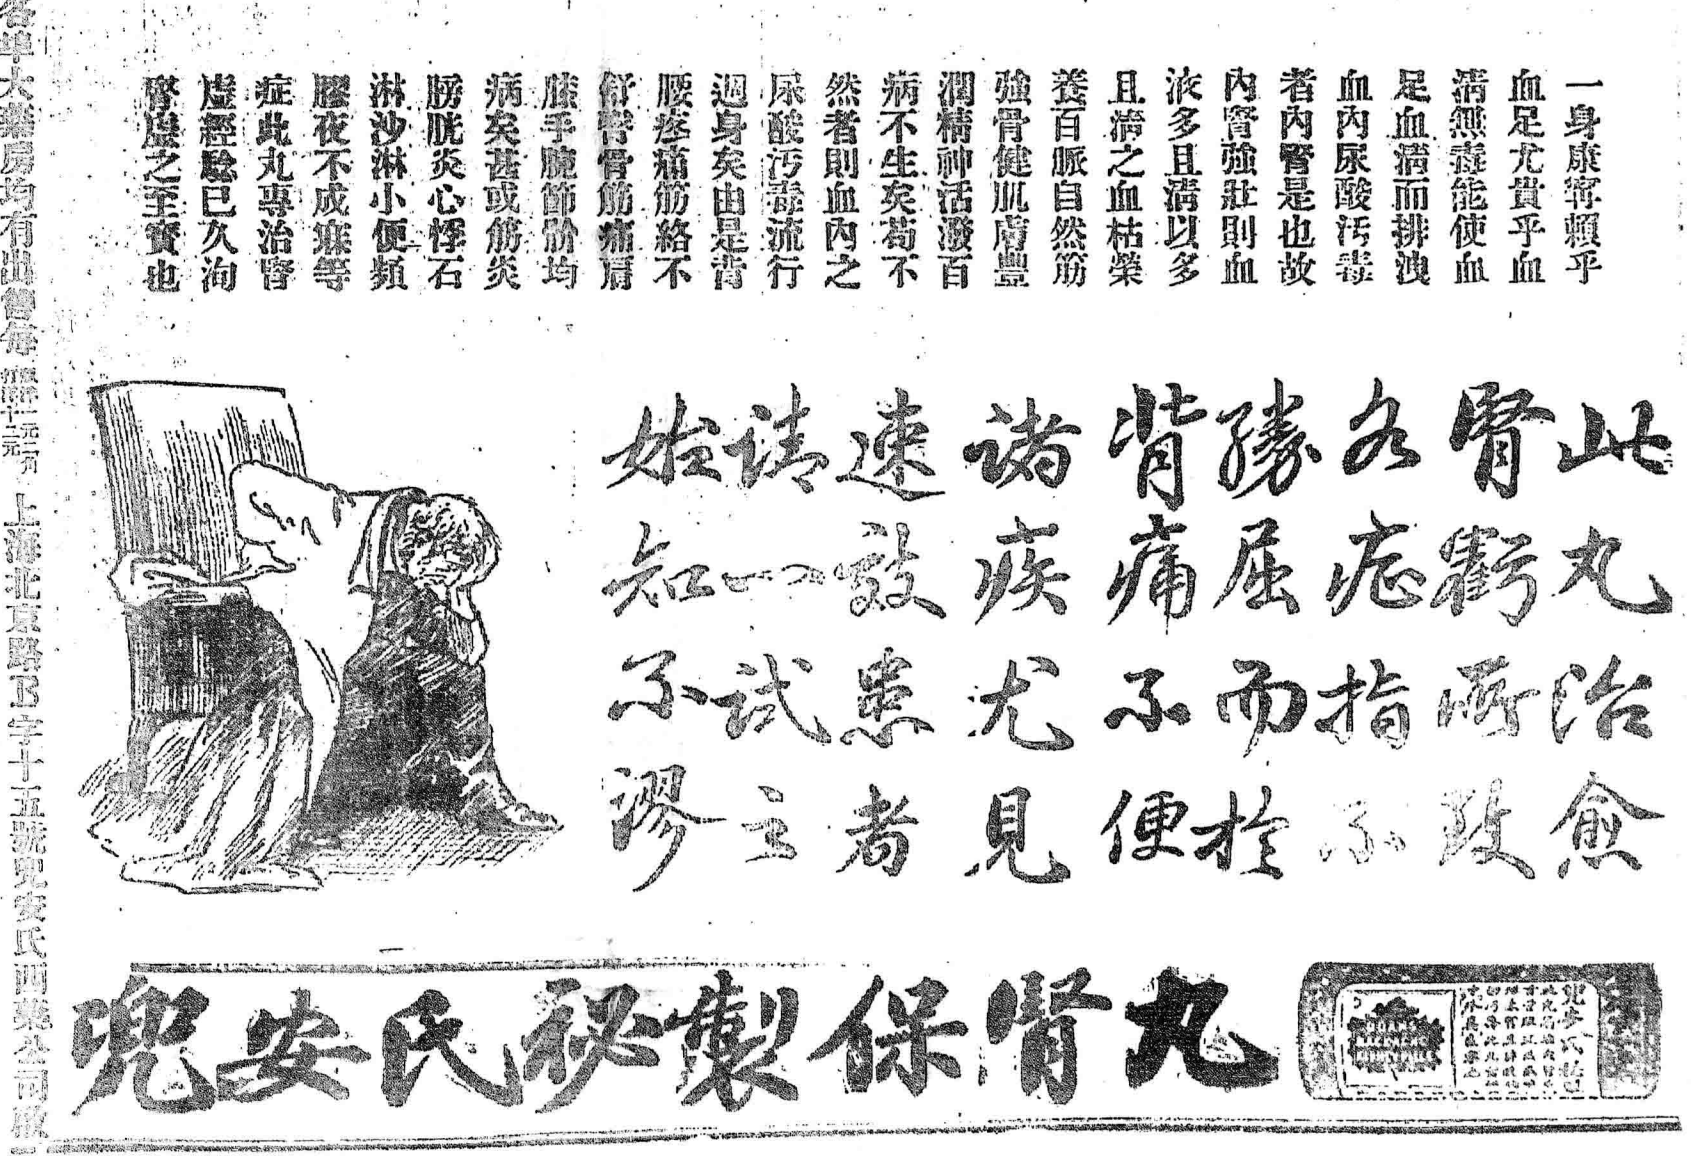 一身康寧賴乎
血足尤貴乎血
清無毒能使血
足血清而排洩
血內尿酸污毒
者內腎是也故
內腎強壯則血
液多且清以多
且清之血枯榮
養百脈自然筋
強骨健肌膚豐
潤精神活潑百
病不生矣苟不
然者則血內之
尿酸污毒流行
週身矣由是背
腰疼痛筋絡不
舒脊骨筋痛肩
膝手腕節骱均
病矣甚或筋炎
膀胱炎心悸石
淋沙淋小便頻
膠夜不成寐等
症此丸專治腎
虛經驗已久洵
腎虛之至寶也
此丸治愈
腎虧所致
各症指不
勝屈而於
背痛不便
諸疾尤見
速效患者
請一試之
始知不謬
兜安氏秘製保腎丸
DOANS
BACKACHE
KIDNEY PILLS
大藥房均有出售每
上海北京路B字十五號兜安氏西藥公司啟